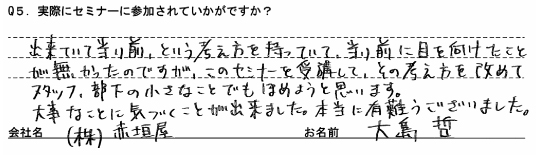 Q5．実際にセミナーに参加されていかがですか？
出来ていて当り前、という考え方を持っていて、当り前に目を向けたこと
が無かったのですが、このセミナーを受講して、その考え方を改めて
スタッフ、部下の小さなことでもほめようと思います。
大事なことに気づくことが出来ました。本当に有難うございました。
会社名 (株)赤垣屋 お名前 大島 哲